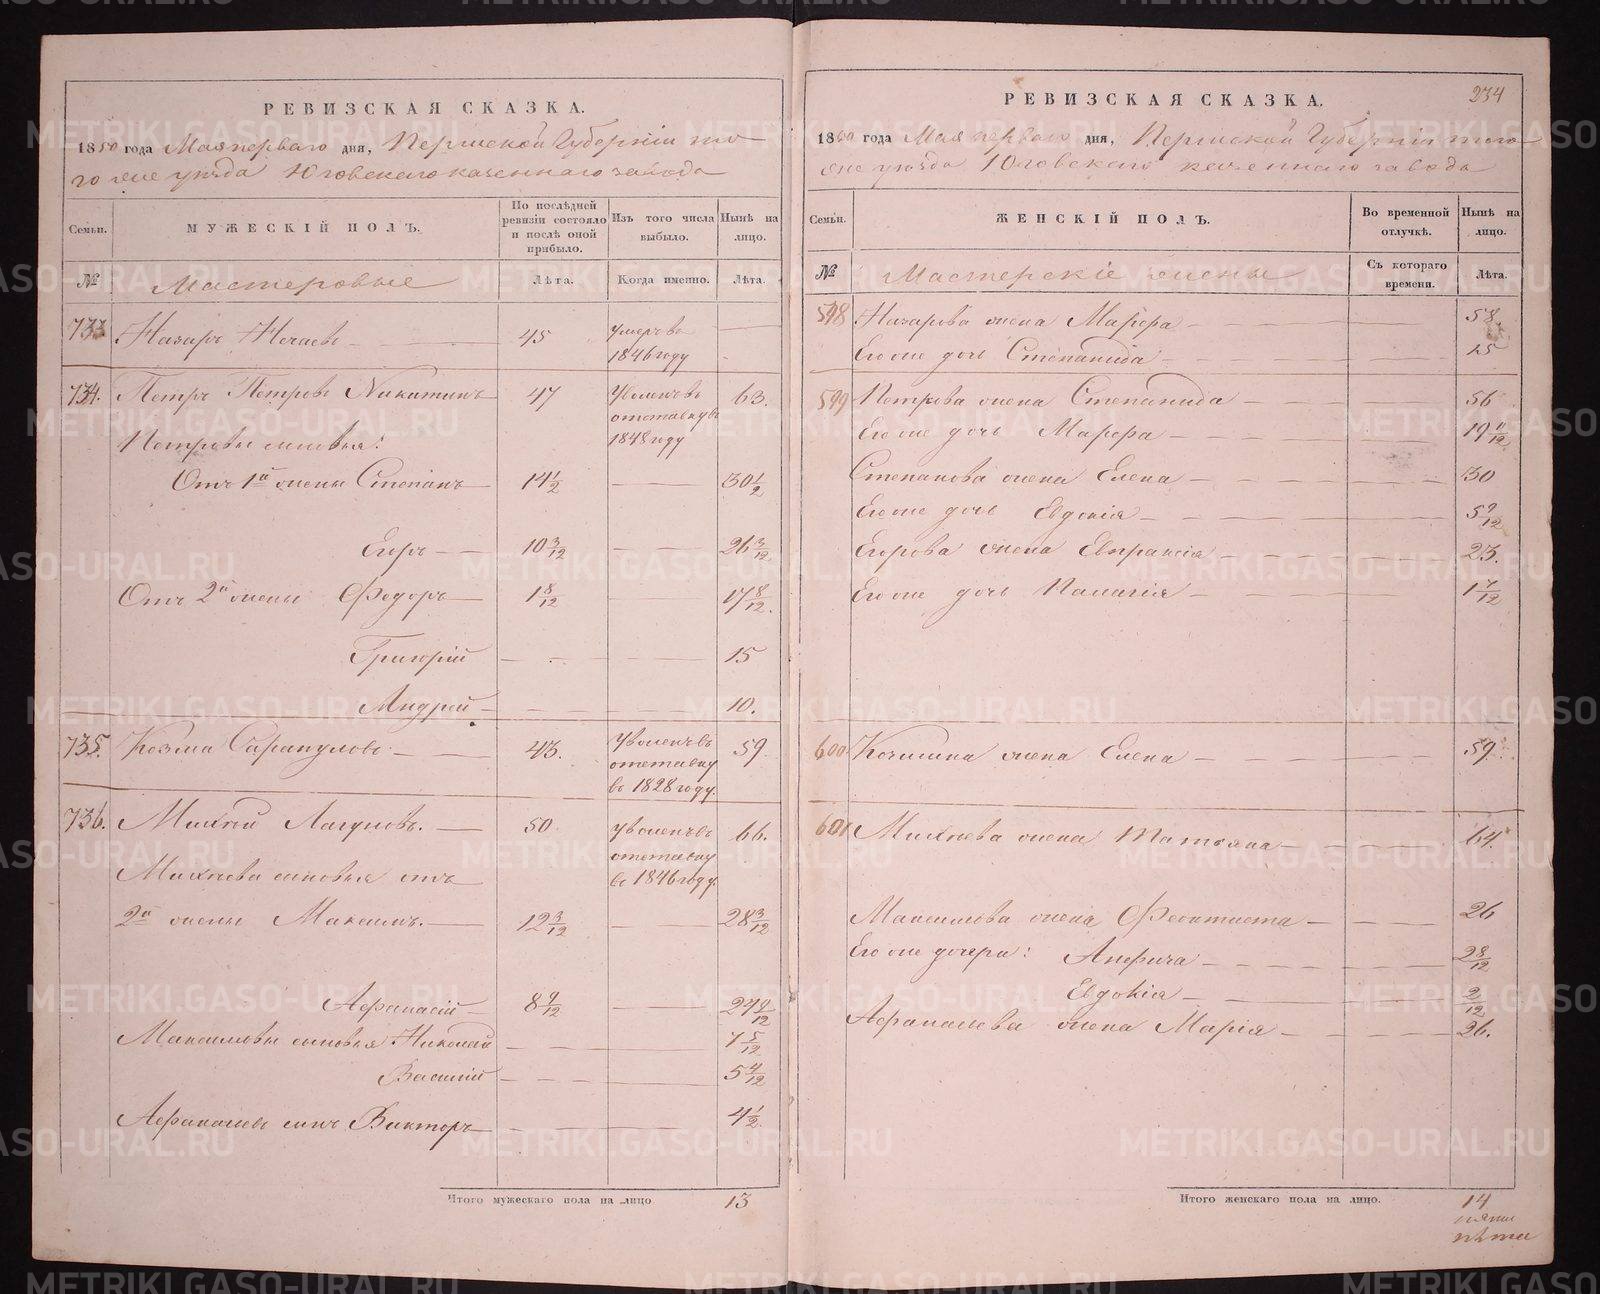 РЕВИЗСКАЯ СКАЗКА.
1850 года Мая перваго дня, Пермской Губерніи то-
го же уѣзда Юговскаго казеннаго завода
Семьи. МУЖЕСКІЙ ПОЛЪ. По послѣдней ревизіи состояло и послѣ оной прибыло. Изъ того числа выбыло. Нынѣ на лицо.
№ Мастеровые Лѣта. Когда именно. Лѣта.
733 Назаръ Нечаевъ 45 умеръ въ 1846 году
734. Петръ Петровъ Никитинъ 47 Уволенъ въ отставку въ 1848 году 63.
Петровы сыновья:
Отъ 1й жены Степанъ 14 1/2 30 1/2
Егоръ 10 3/12 26 3/12
Отъ 2й жены Ѳедоръ 1 8/12 17 8/12.
Григорій 15
Андрей 10.
735. Козма Сарапуловъ 43. уволенъ въ отставку въ 1828 году. 59
736. Михѣй Лагуновъ. 50 уволенъ въ отставку въ 1846 году. 66.
Михѣевы сыновья отъ
2й жены Максимъ. 12 3/12 28 3/12
Афанасій 8 9/12 24 9/12
Максимовы сыновья Николай 7 5/12
Василій 5 4/12
Афанасьевъ сынъ Викторъ 4 1/2
Итого мужескаго пола на лицо 13
234
РЕВИЗСКАЯ СКАЗКА.
1850 года Мая перваго дня, Пермской Губерніи того
же уѣзда Юговскаго казеннаго завода
Семьи. ЖЕНСКІЙ ПОЛЪ. Во временной отлучкѣ. Нынѣ на лицо.
№ Мастерскіе жены Съ котораго времени. Лѣта.
598 Назарова жена Марфа 58.
Его же дочь Степанида 15
599 Петрова жена Степанида 56
Его же дочь Марфа 19 11/12
Степанова жена Елена 30
Его же дочь Евдокія 5 9/12
Егорова жена Евпраксія 23.
Его же дочь Палагія 1 7/12
600 Козмина жена Елена 59
601 Михѣева жена Татьяна 64.
Максимова жена Феоктиста 26
Его же дочери: Анфиса 2 8/12
Евдокія 2/12
Афанасьева жена Марія 26.
Итого женскаго пола на лицо. 14
METRIKI.GASO-URAL.RU